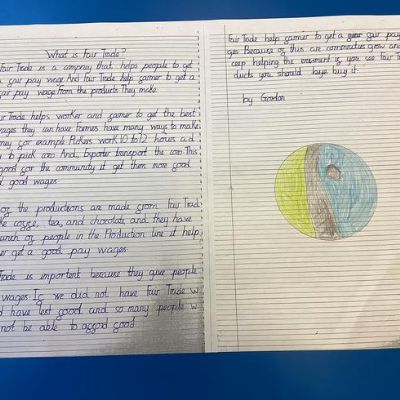 What is Fair Trade?
Fair Trade is a company that helps people to get
a fair pay wage And Fair Trade help farmer to get a
fair pay wage From the products They make.
Fair Trade helps worker and farmer to get the best
wages they can have formes have many ways to make
for example Pickers work 10 to 12 hours a d
to pick coco And, Exporter transport the coco This
good for the community it get them more good
good wages.
of the productions are made from Fair Trad
tea, and chocolate, and they have
bunch of people in the Production line it help
get a good pay wages
Trade is importent because they give people
wages If we did not have Fair Trade w
have less food and so many people w
not be able to afford food
Fair Trade help farmer to get a great fair pay
ges Because of this are communities grow and
keep helping the enviroment if you see Fair T
ducts you should buys buy it.
by Gordon